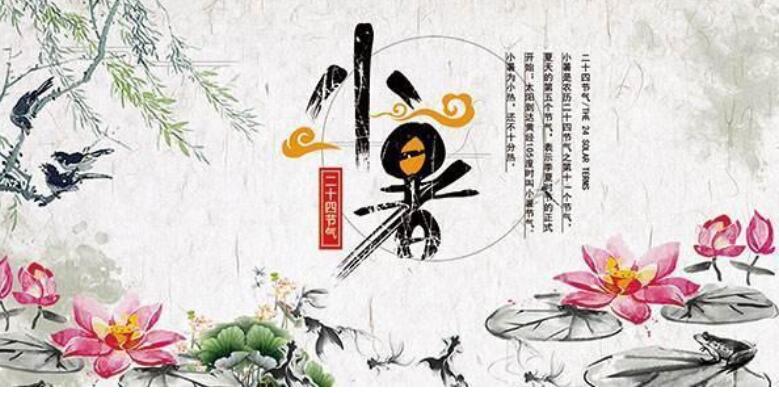 小暑
二十四节气
二十四节气/THE 24 SOLAR TERMS
小暑是农历二十四节气之第十一个节气，
夏天的第五个节气，表示季夏时节的正式
开始；太阳到达黄经105度时叫小暑节气。
暑为小热，还不十分热。